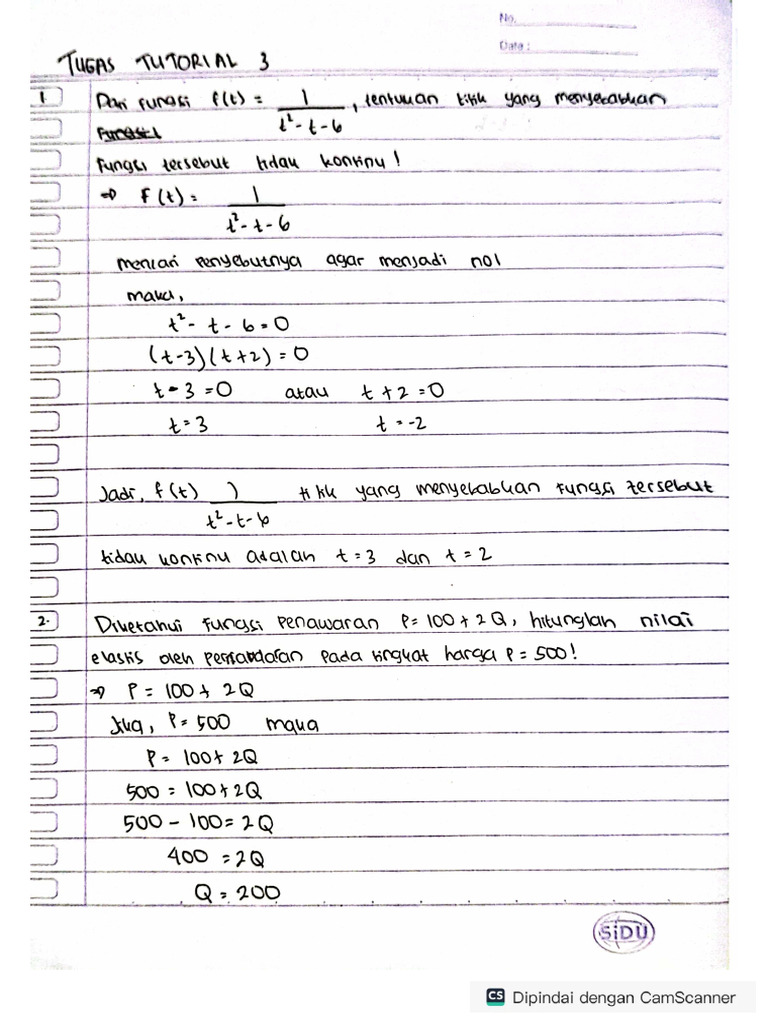 No.
Date :
TUGAS TUTORIAL 3
1. Dari fungsi f(t) = 1 / t² - t - 6 , tentukan titik yang menyebabkan
Fungsi
fungsi tersebut tidak kontinu!
⇒ f(t) = 1 / t² - t - 6
mencari penyebutnya agar menjadi nol
maka,
t² - t - 6 = 0
(t-3)(t+2) = 0
t - 3 = 0 atau t + 2 = 0
t = 3 t = -2
Jadi, f(t) 1 / t² - t - 6 titik yang menyebabkan fungsi tersebut
tidak kontinu adalah t = 3 dan t = 2
2. Diketahui fungsi penawaran P = 100 + 2Q, hitunglah nilai
elastis oleh pada tingkat harga P = 500!
⇒ P = 100 + 2Q
Jika, P = 500 maka
P = 100 + 2Q
500 = 100 + 2Q
500 - 100 = 2Q
400 = 2Q
Q = 200
SiDU
CS Dipindai dengan CamScanner